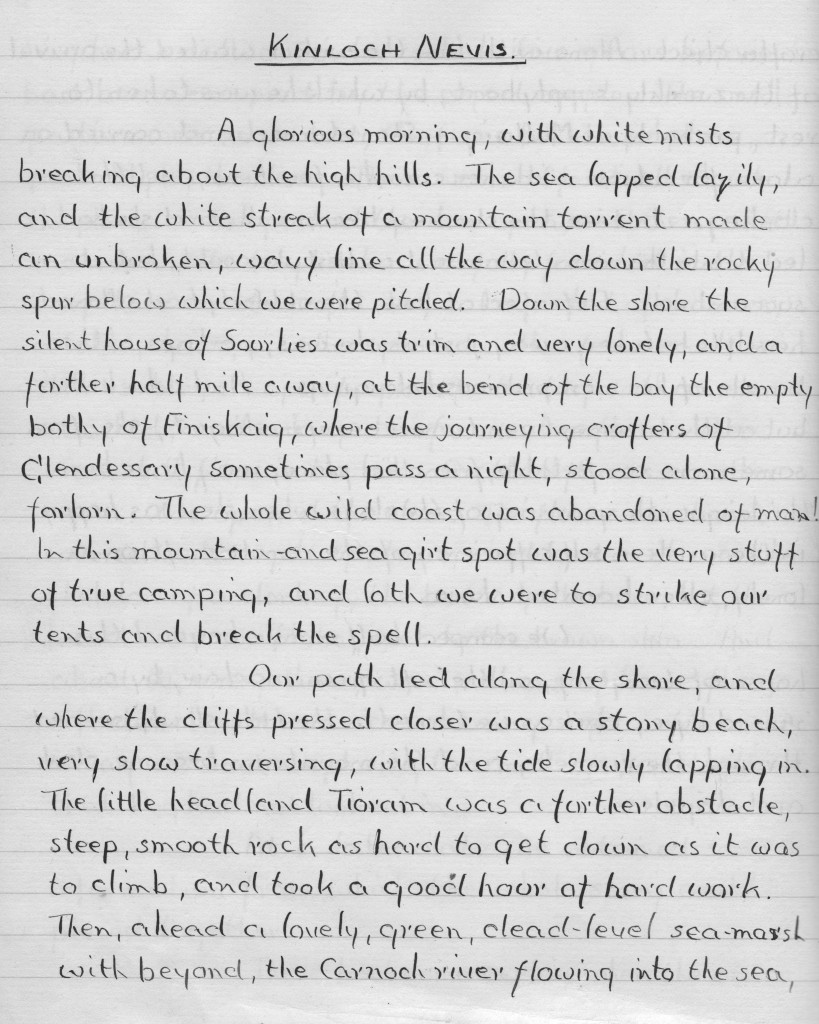 KINLOCH NEVIS.
A glorious morning, with white mists
breaking about the high hills. The sea lapped lazily,
and the white streak of a mountain torrent made
an unbroken, wavy line all the way down the rocky
spur below which we were pitched. Down the shore the
silent house of Sourlies was trim and very lonely, and a
further half mile away, at the bend of the bay the empty
bothy of Finiskaig, where the journeying crofters of
Glendessary sometimes pass a night, stood alone,
forlorn. The whole wild coast was abandoned of man!
In this mountain-and sea girt spot was the very stuff
of true camping, and loth we were to strike our
tent and break the spell.
Our path led along the shore, and
where the cliffs pressed closer was a stony beach,
very slow traversing, with the tide slowly lapping in.
The little headland Tioram was a further obstacle,
steep, smooth rock as hard to get down as it was
to climb, and took a good hour of hard work.
Then, ahead a lovely, green, dead-level sea-marsh
with beyond, the Carnoch river flowing into the sea,